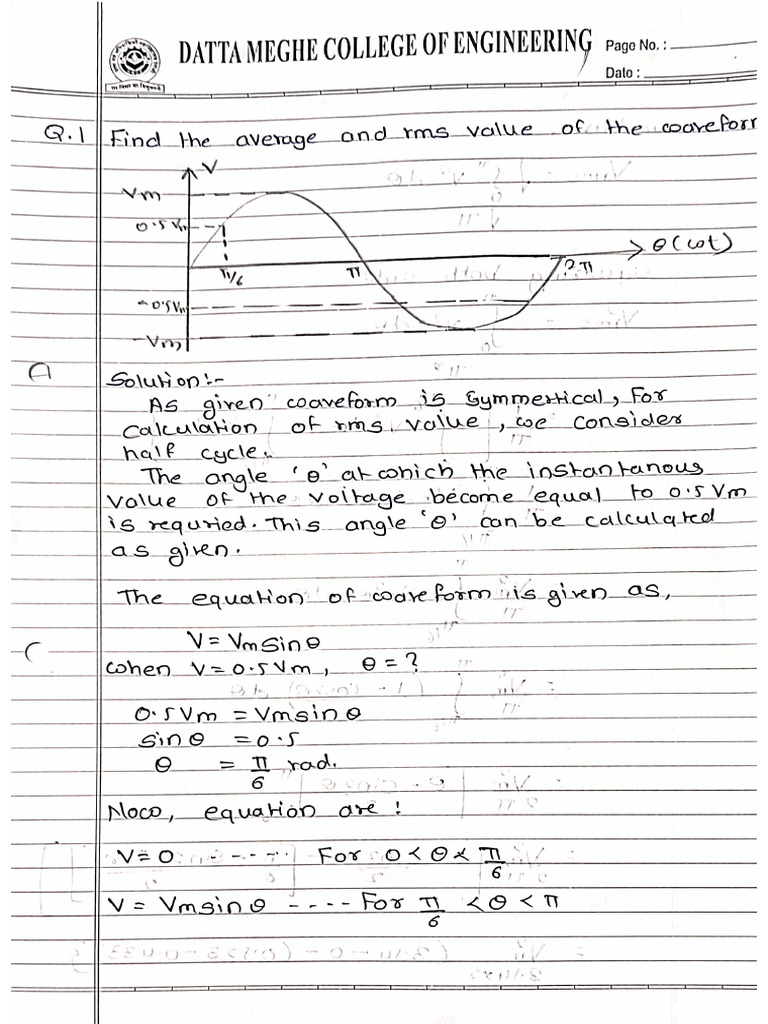 DATTA MEGHE COLLEGE OF ENGINEERING
Page No. :
Date :
Q.1 Find the average and rms value of the waveform
V
Vm
0.5 Vm
θ (wt)
π/6
π
2π
-0.5Vm
-Vm
Solution:-
As given waveform is Symmertical, For
calculation of rms value, we consider
half cycle.
The angle 'θ' at which the instantanous
value of the voltage become equal to 0.5 Vm
is requried. This angle 'θ' can be calculated
as given.
The equation of waveform is given as,
V = Vm sin θ
when V = 0.5 Vm, θ = ?
0.5 Vm = Vm sin θ
sin θ = 0.5
θ = π/6 rad.
Now, equation are :
V = 0 ----- For 0 < θ < π/6
V = Vm sin θ ---- For π/6 < θ < π